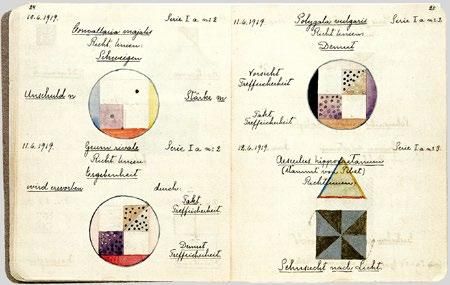 24
10.6.1919. Serie I a m: 2
Convallaria majalis
Richt. linien:
Schweigen
Unschuld n Stärke m
11.6.1919. Serie I a m: 2
Geum rivale
Richt. linien:
Ergebenheit
wird erworben durch:
Takt
Treffsicherheit
Demut
Treffsicherheit
25
11.6.1919. Serie I a m: 2
Polygala vulgaris
Richt. linien:
Demut
Vorsicht
Treffsicherheit
Takt
Treffsicherheit
12.6.1919. Serie I a m: 3.
Aesculus hippocastanum
(stammt von Tibet)
Richtlinien
Sehnsucht nach Licht.